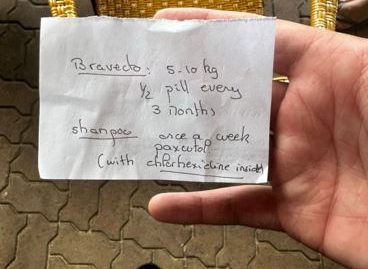 Bravecto: 5-10 kg
1/2 pill every
3 months
shampoo once a week
paxcutol
(with chlorhexidine inside)